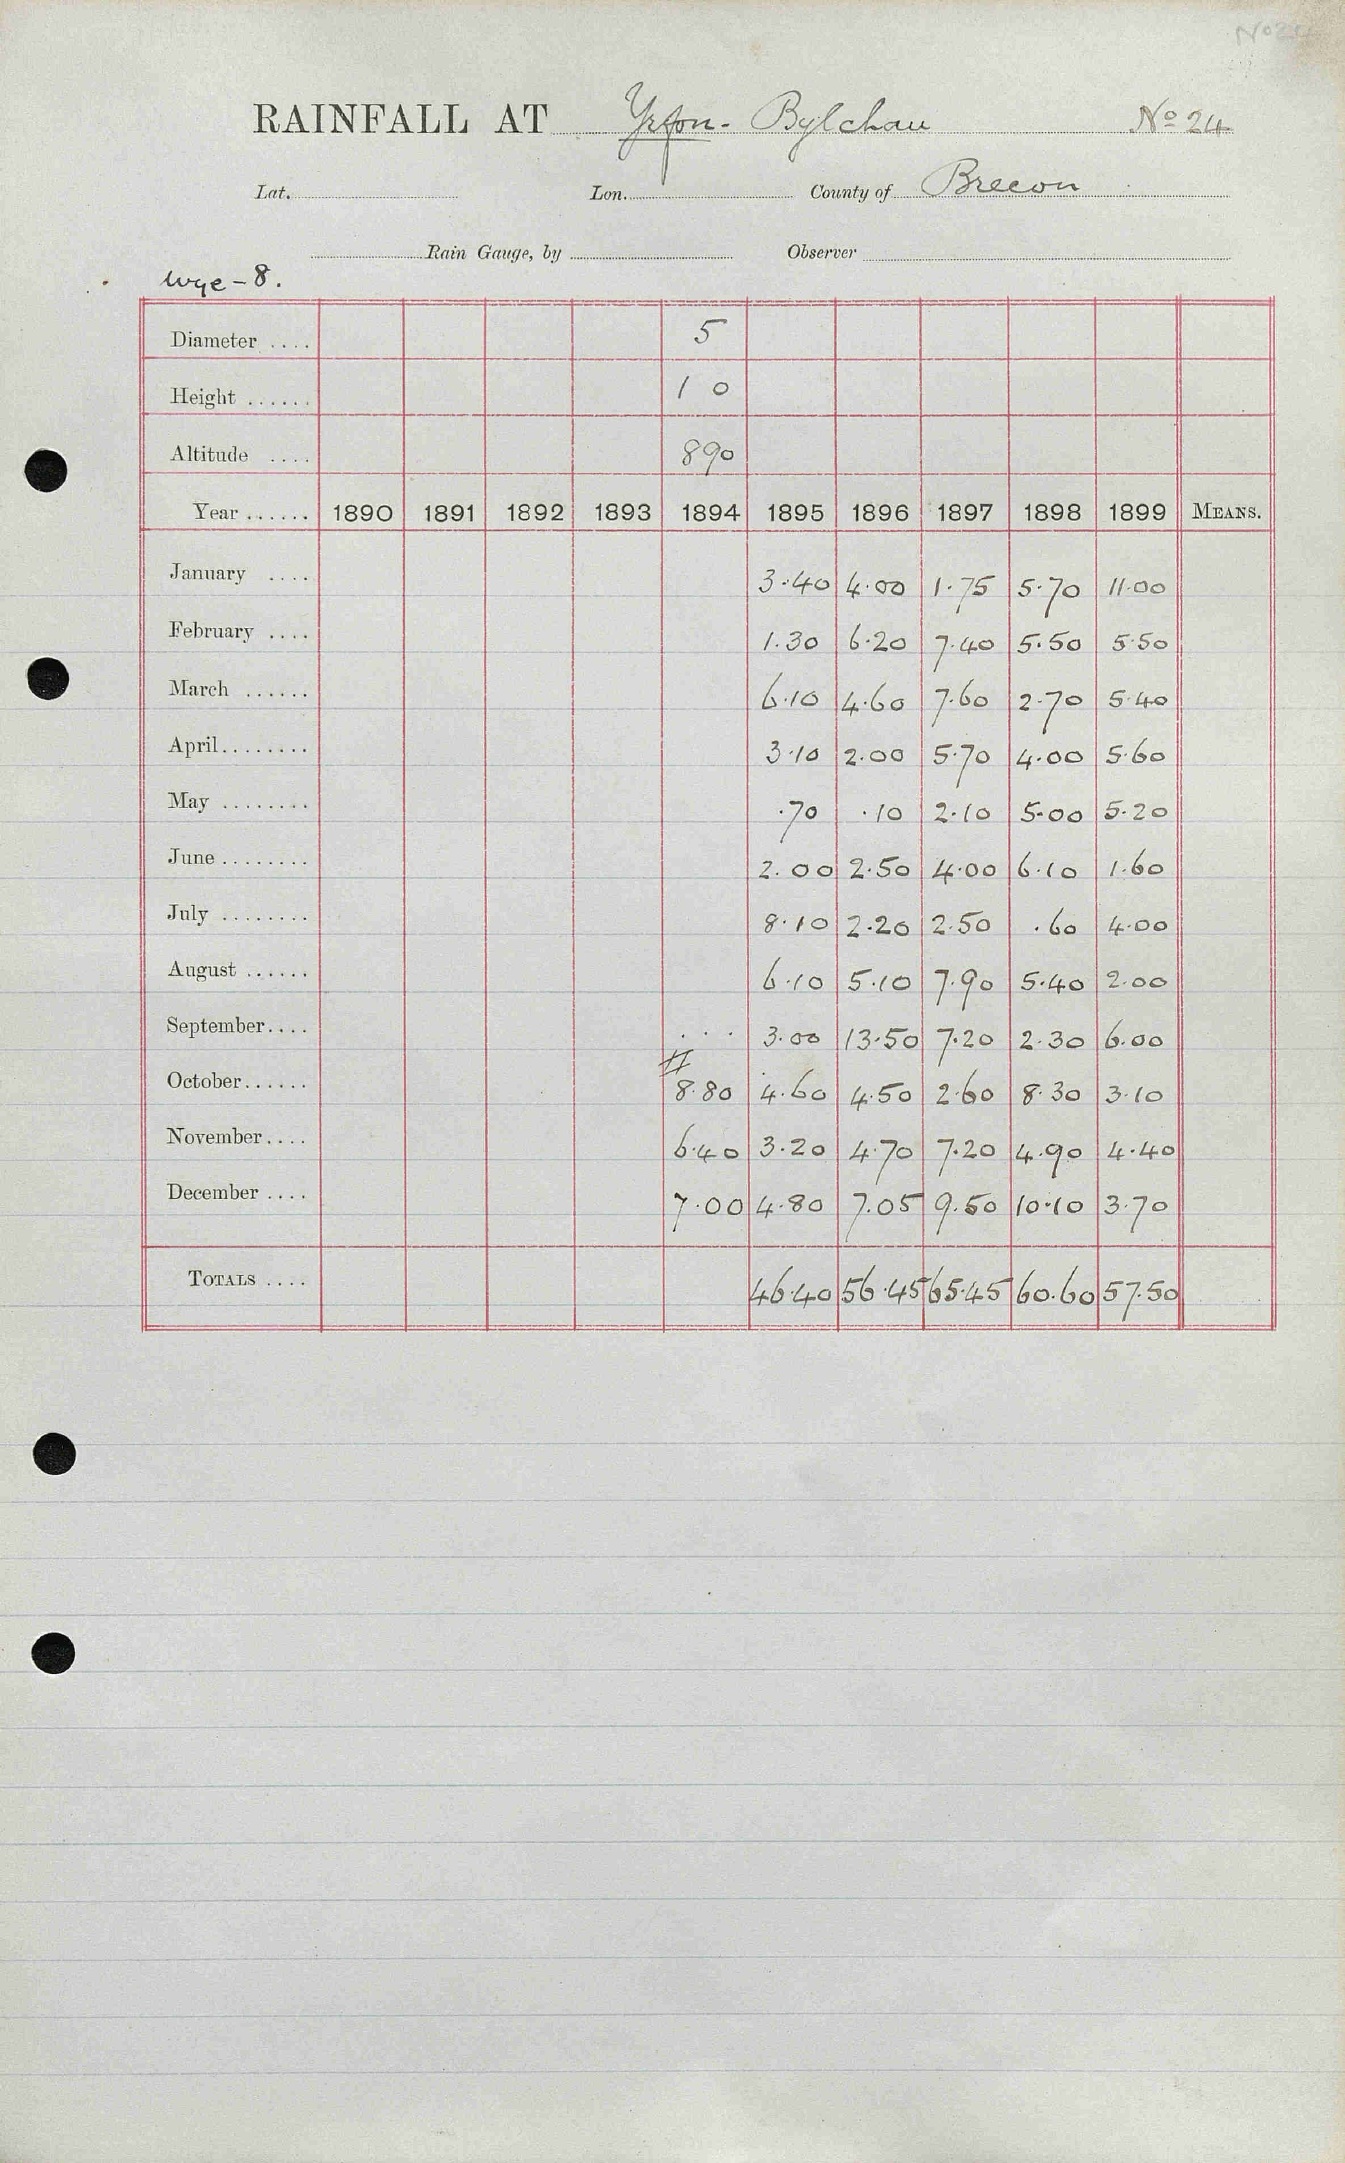 No 24
RAINFALL AT Yrfon - Bylchau No 24
Lat. Lon. County of Brecon
Rain Gauge, by Observer
Wye - 8.
Diameter .... 5
Height ...... 1 0
Altitude .... 890
Year ...... 1890 1891 1892 1893 1894 1895 1896 1897 1898 1899 MEANS.
January .... 3.40 4.00 1.75 5.70 11.00
February .... 1.30 6.20 7.40 5.50 5.50
March ...... 6.10 4.60 7.60 2.70 5.40
April........ 3.10 2.00 5.70 4.00 5.60
May ........ .70 .10 2.10 5.00 5.20
June ........ 2.00 2.50 4.00 6.10 1.60
July ........ 8.10 2.20 2.50 .60 4.00
August ...... 6.10 5.10 7.90 5.40 2.00
September.... ... 3.00 13.50 7.20 2.30 6.00
October...... # 8.80 4.60 4.50 2.60 8.30 3.10
November.... 6.40 3.20 4.70 7.20 4.90 4.40
December .... 7.00 4.80 7.05 9.50 10.10 3.70
TOTALS .... 46.40 56.45 65.45 60.60 57.50